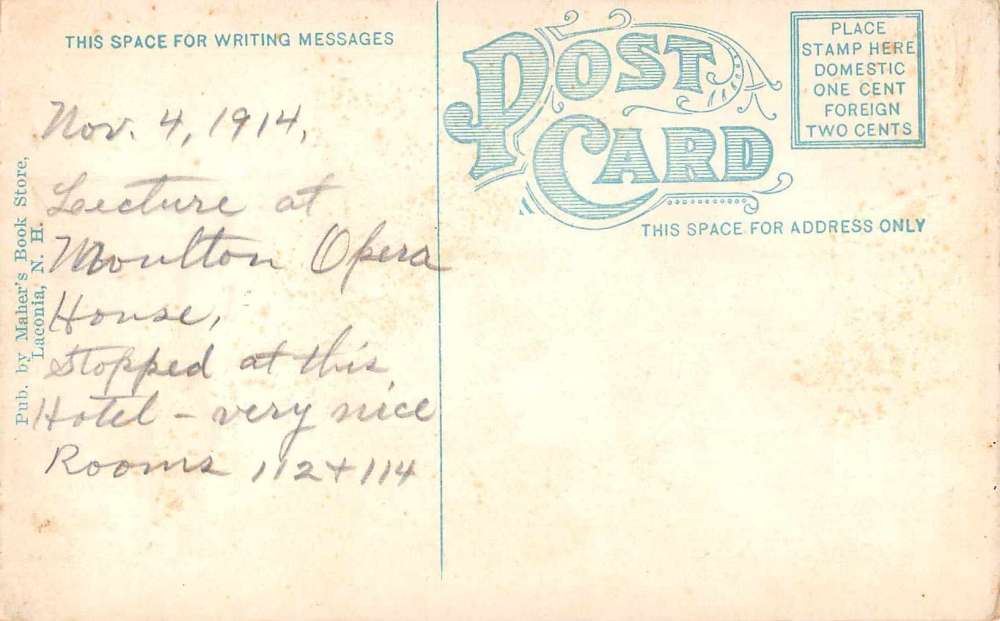 THIS SPACE FOR WRITING MESSAGES
Nov. 4, 1914,
Lecture at
Moulton Opera
House,
Stopped at this
Hotel - very nice
Rooms 112 + 114
Pub. by Maher's Book Store,
Laconia, N. H.
POST
CARD
THIS SPACE FOR ADDRESS ONLY
PLACE
STAMP HERE
DOMESTIC
ONE CENT
FOREIGN
TWO CENTS